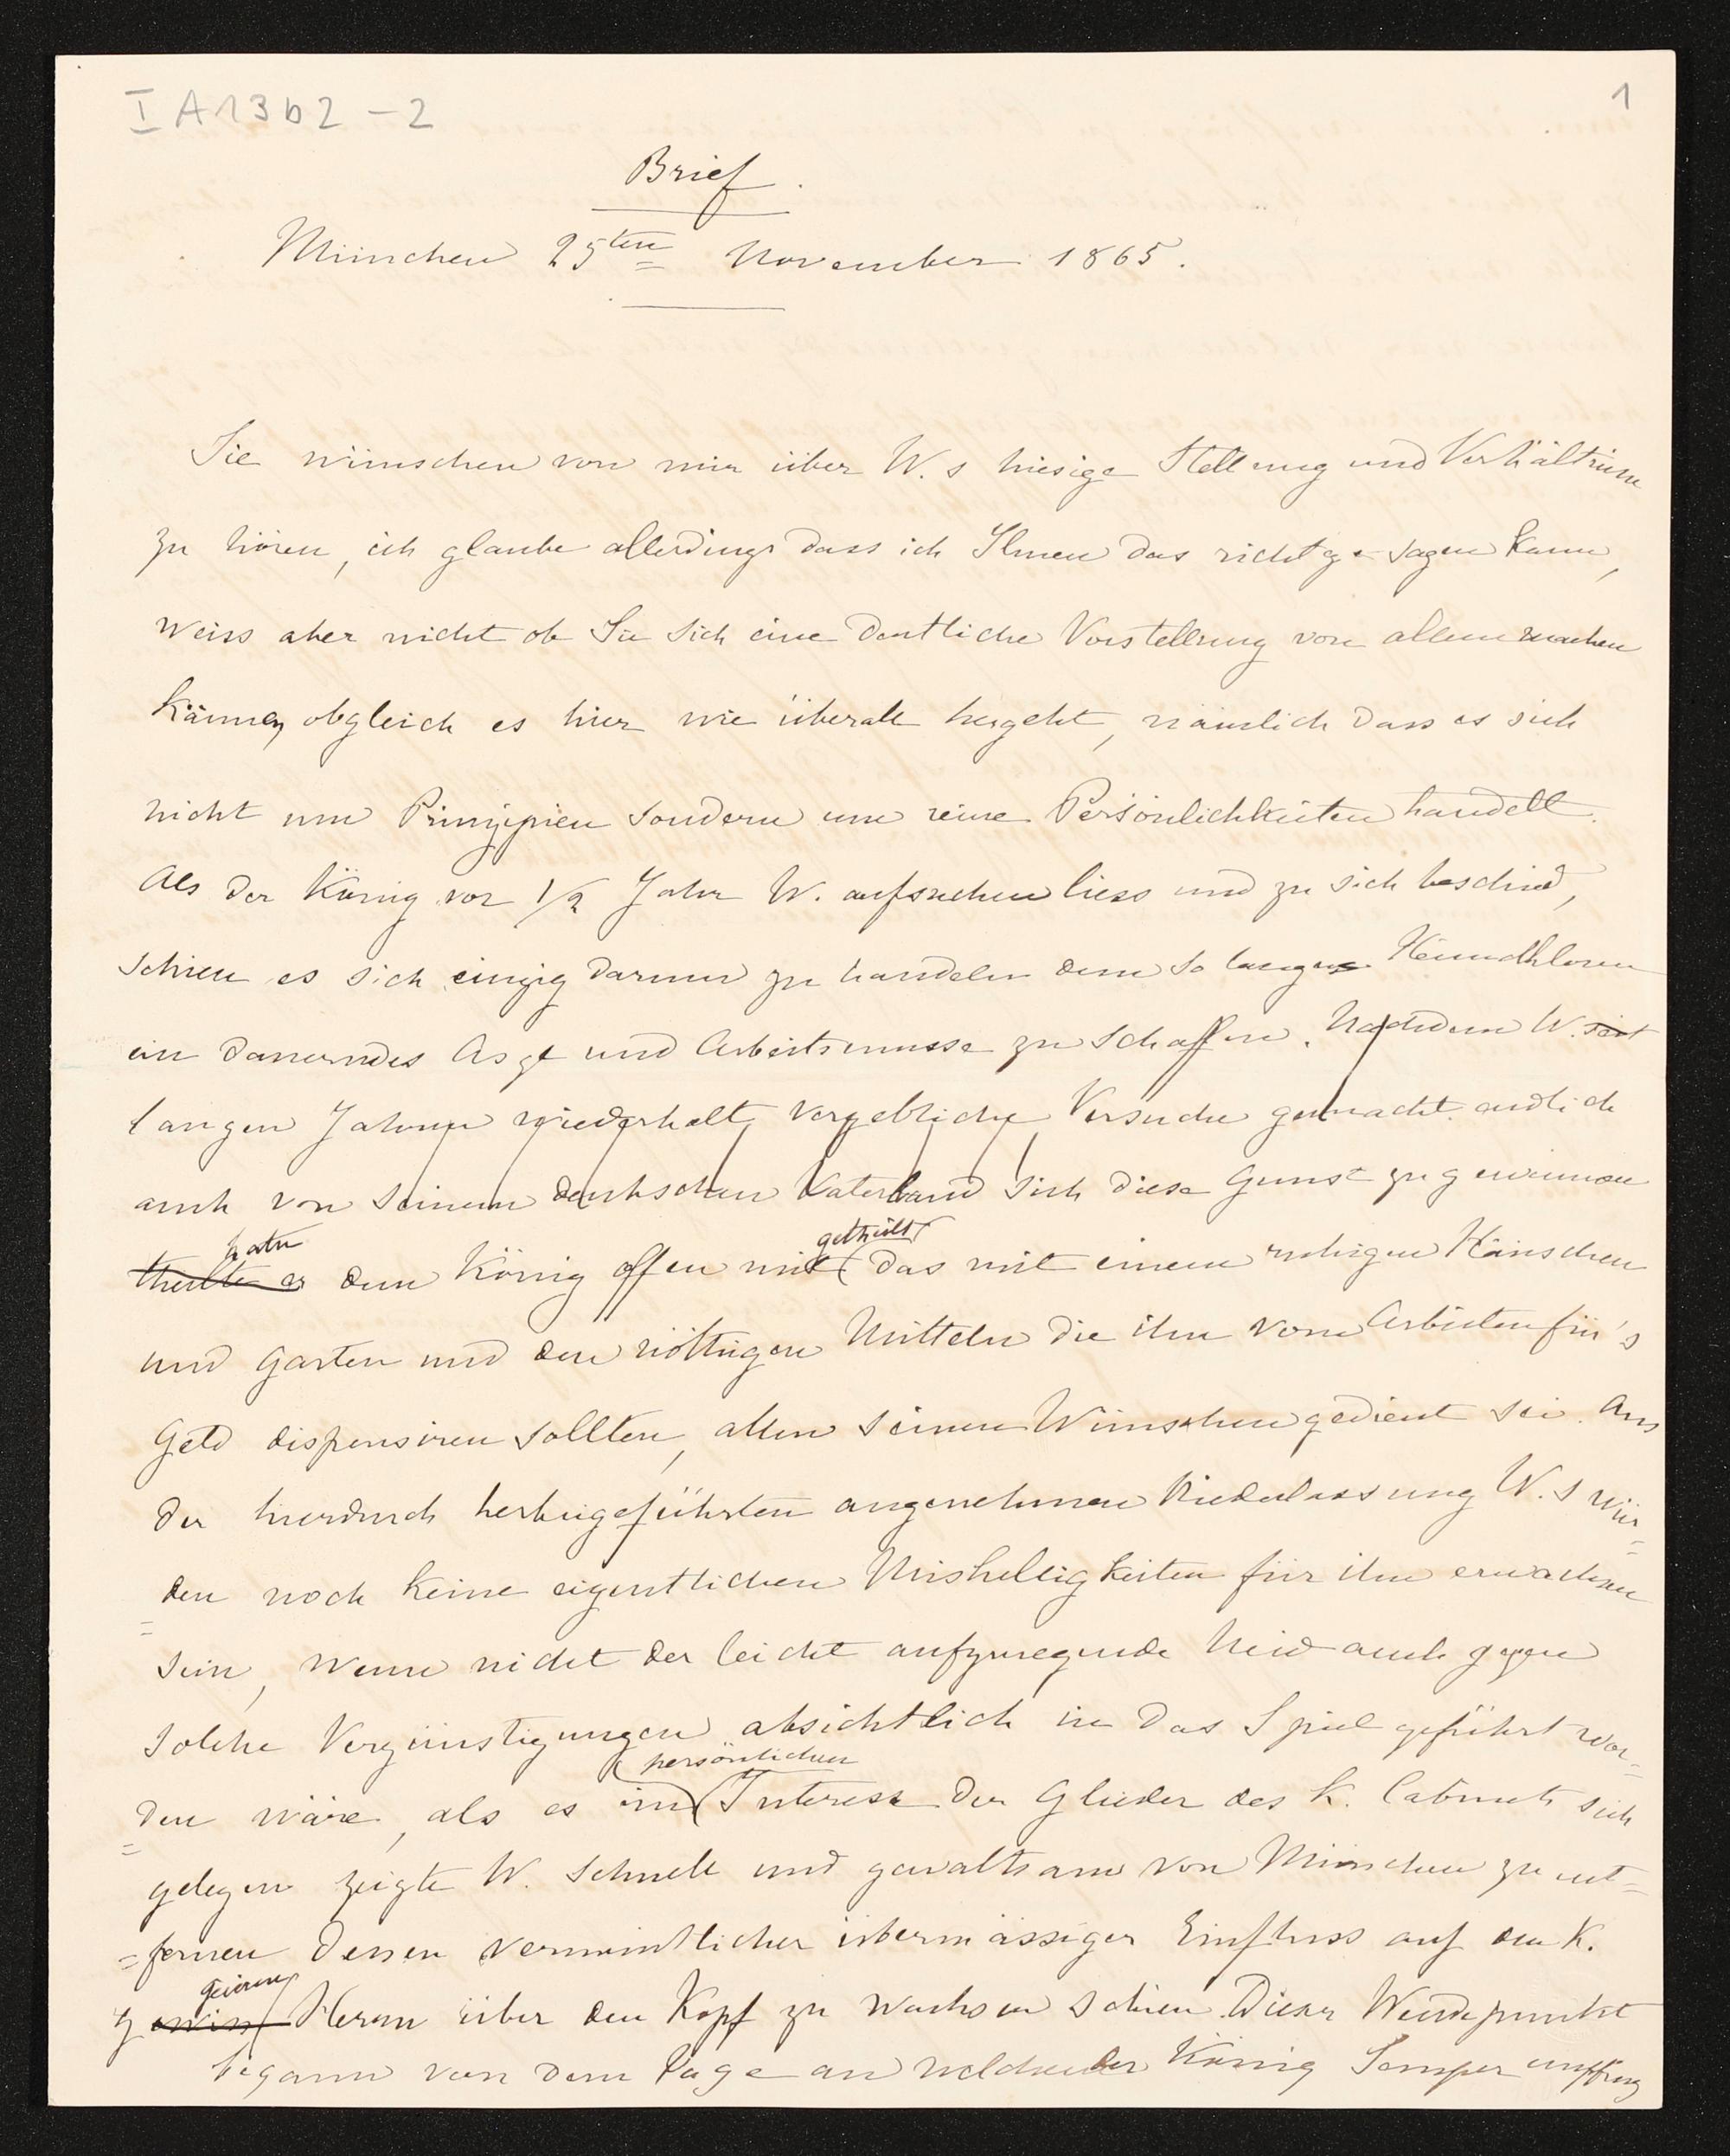 I A 13 b 2 - 2
1
Brief.
München 25ten November 1865.
Sie wünschen von mir über W.s hiesige Stellung und Verhältnisse
zu hören, ich glaube allerdings dass ich Ihnen das richtge sagen kann,
weiss aber nicht ob Sie sich eine deutliche Vorstellung von allem machen
können, obgleich es hier wie überall hergeht, nämlich dass es sich
nicht um Prinzipien sondern um reine Persönlichkeiten handelt.
Als der König vor 1/2 Jahr W. aufsuchen liess und zu sich beschied,
schien es sich einzig darum zu handeln dem so lange Heimathlosen
ein dauerndes Asyl und Arbeitsmusse zu schaffen. Nachdem W. seit
langen Jahren wiederholt vergebliche Versuche gemacht endlich
auch von seinem deutschen Vaterland sich diese Gunst zu gewinnen
hatte getheilt
theilte er dem König offen mit das mit einem ruhigen Häuschen
und Garten und den nöthigen Mitteln die ihn vom Arbeiten für's
Geld dispensiren sollten, allen seinen Wünschen gedient sei. Aus
der hierdurch herbeigeführten angenehmen Niederlassung W.s wür=
=den noch keine eigentlichen Mishelligkeiten für ihn erwachsen
sein, wenn nicht der leicht aufzuregende Neid auch gegen
solche Vergünstigungen absichtlich in das Spiel geführt wor=
persönlichen
=den wäre, als es im Interesse der Glieder des K. Cabinets sich
gelegen zeigte W. schnell und gewaltsam von München zu ent=
=fernen dessen vermeintlicher übermässiger Einfluss auf den K.
gewissen Herrn über den Kopf zu wachsen schien. Dieser Wendepunkt
begann von dem Tage an welchem der König Semper empfing